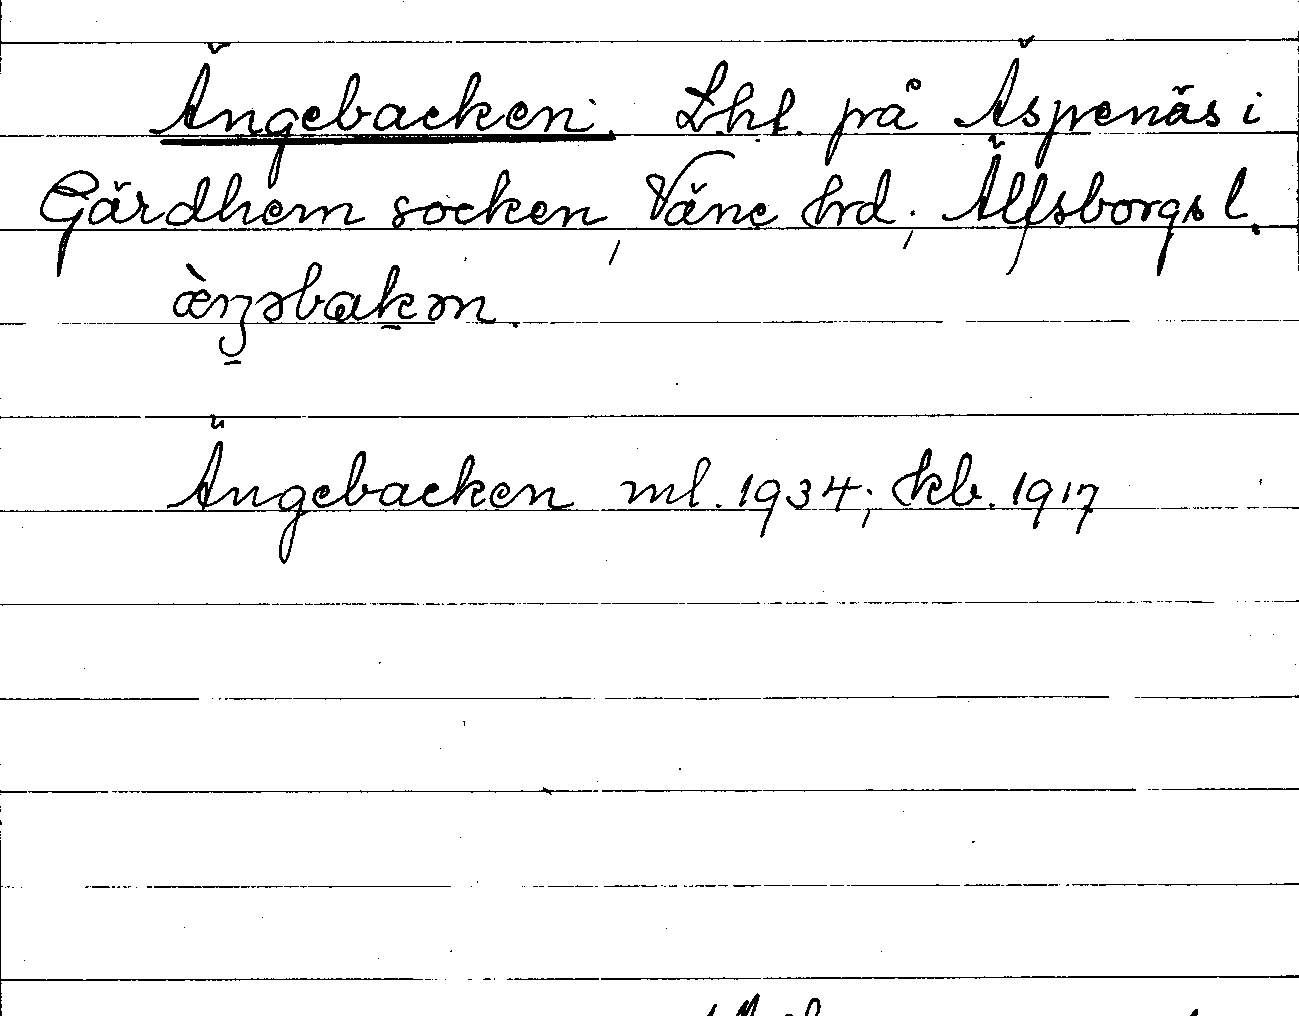 Ängebacken. Lhl. på Äspenäs i
Gärdhem socken, Väne hrd; Älfsborgs l.
æ̀ŋəbakən.
Ängebacken ml. 1934; kb. 1917